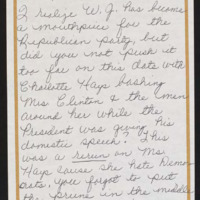 I realize W.J. has become
a mouthpiece for the
Republican party, but
did you not push it
too far on this date with
Charlette Hays bashing
Mrs Clinton & the men
around her while the
President was giving his
domestic speech. This
was a rerun on Ms
Hays cause she hate Demo-
crats. You forgot to put
the prunes in the middle